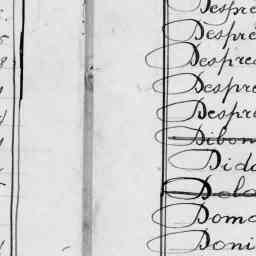 Despre
Despre
Despre
Despre
Despre
Dibon
Dido
Dola
Doma
Doni